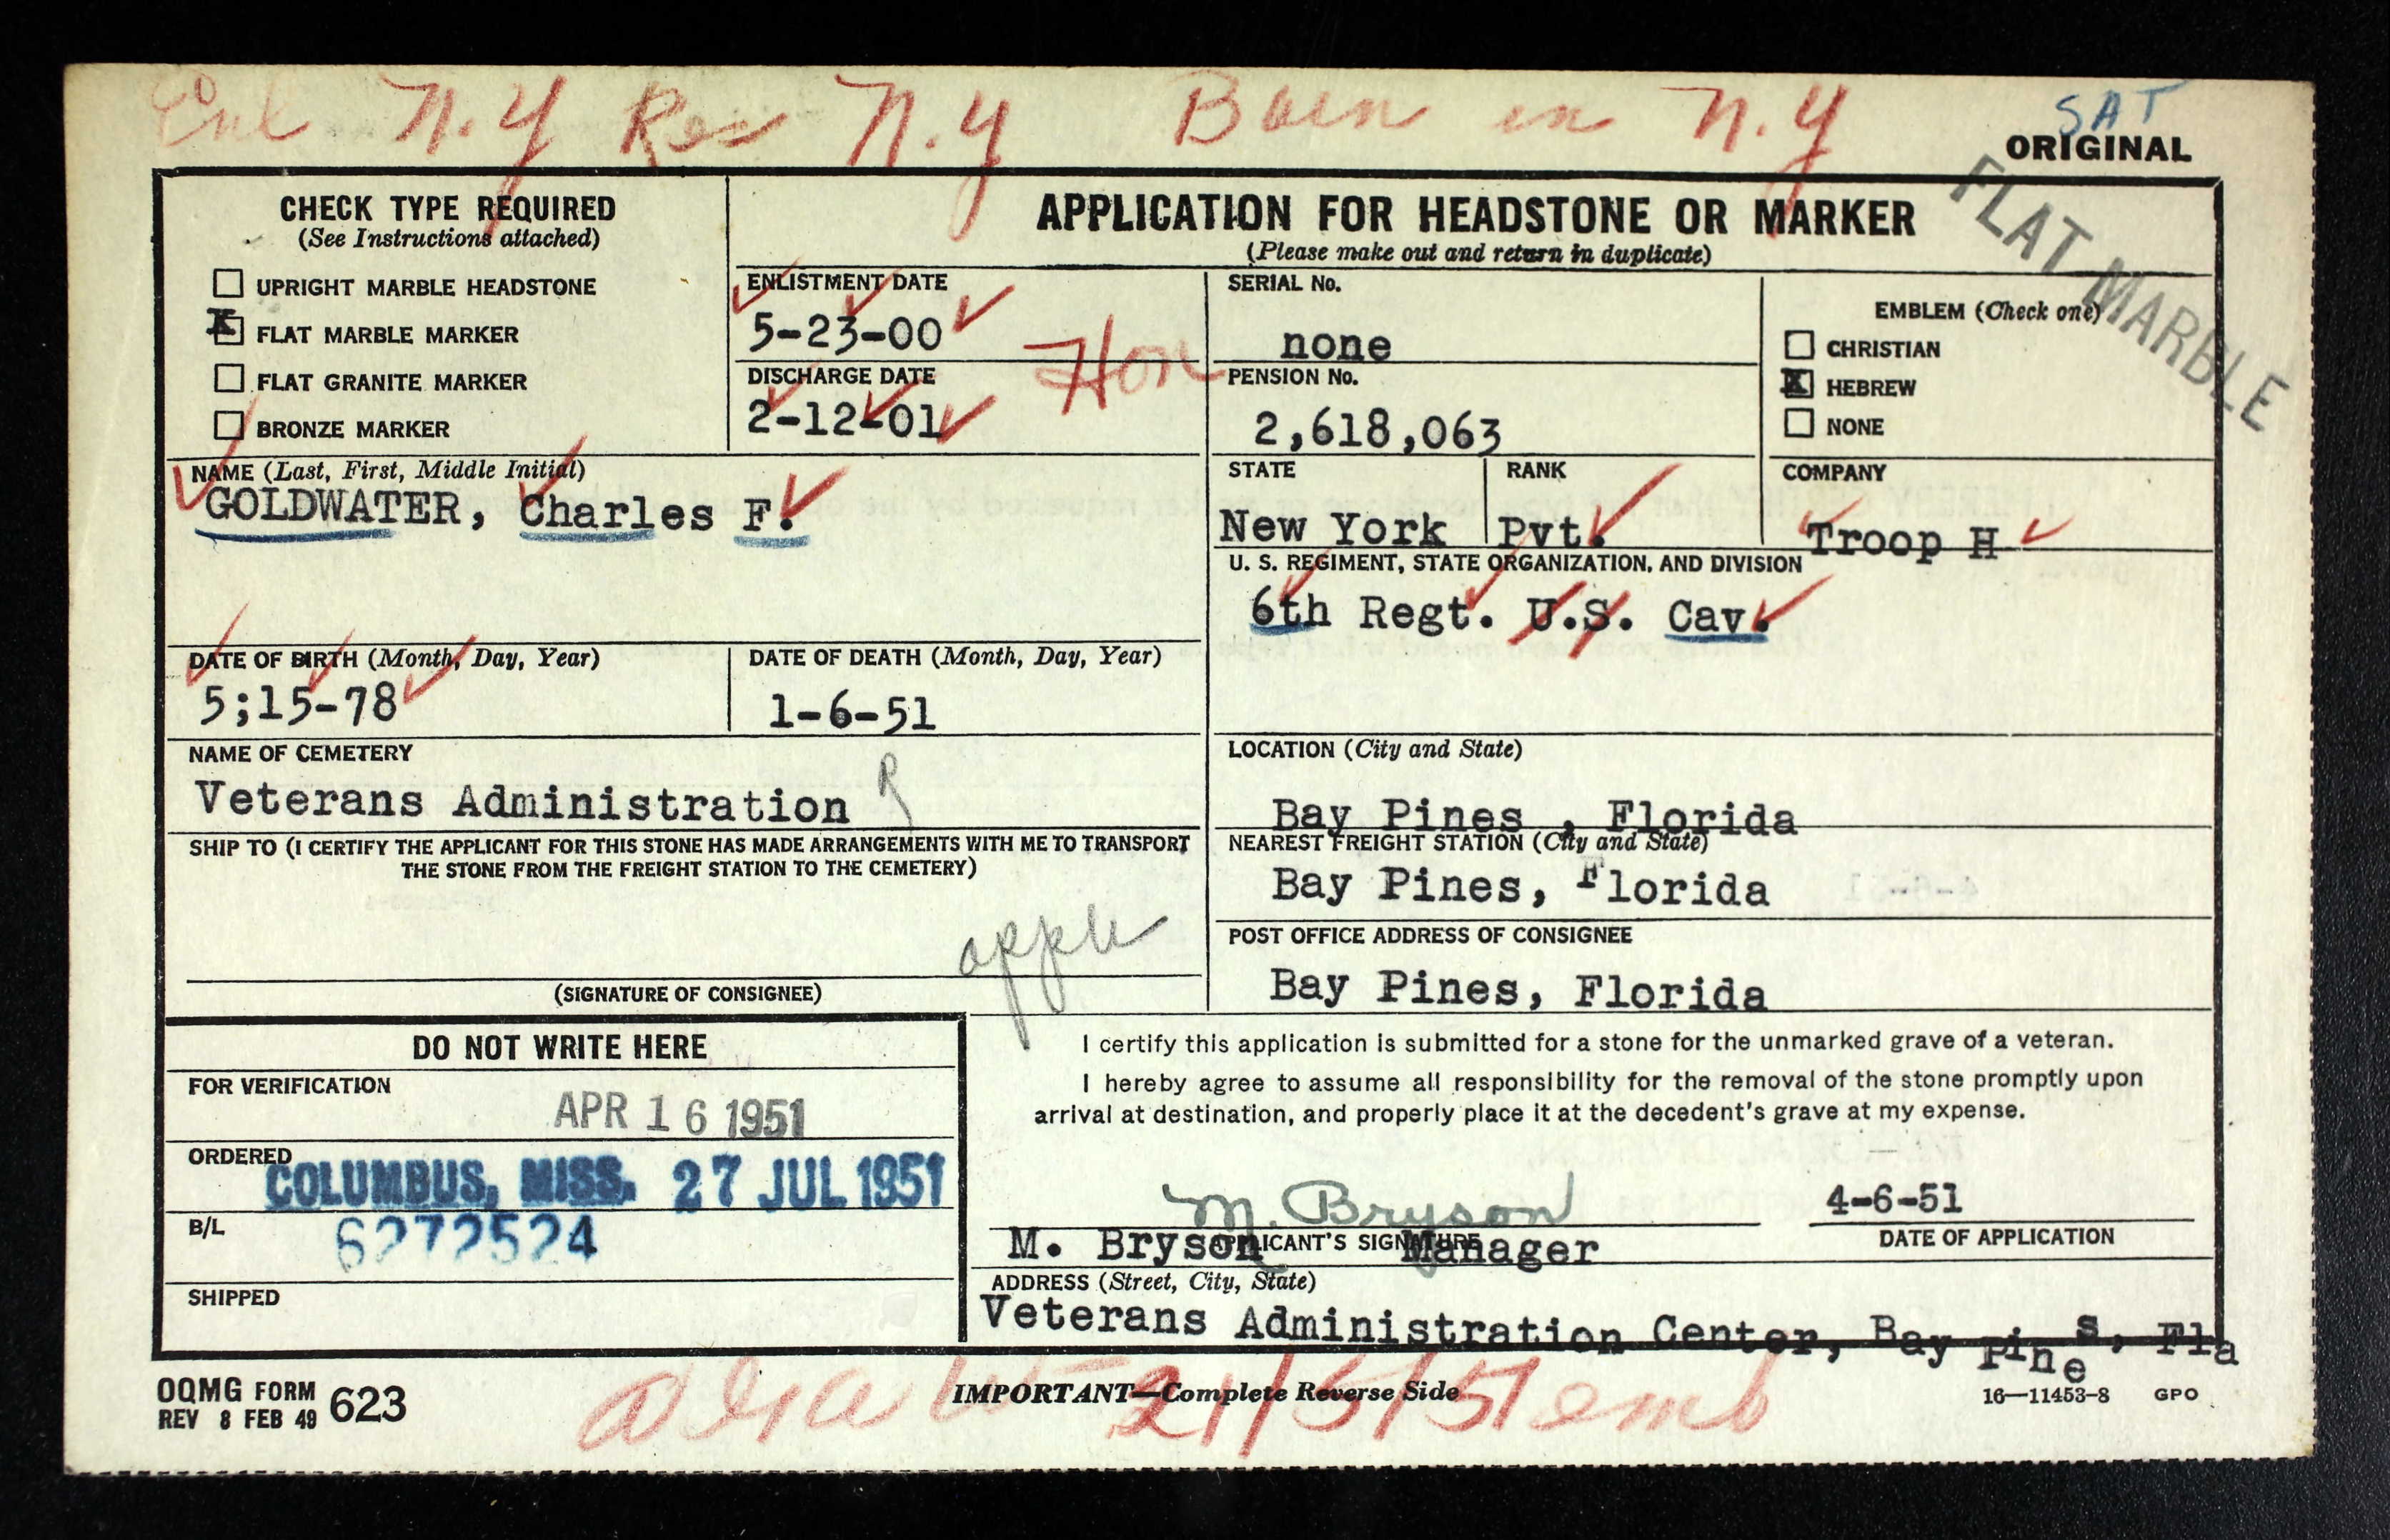 Enl N.Y Res N.Y Born in N.Y
SAT
ORIGINAL
FLAT MARBLE
CHECK TYPE REQUIRED
(See Instructions attached)
UPRIGHT MARBLE HEADSTONE
X FLAT MARBLE MARKER
FLAT GRANITE MARKER
BRONZE MARKER
APPLICATION FOR HEADSTONE OR MARKER
(Please make out and return in duplicate)
ENLISTMENT DATE
5-23-00
DISCHARGE DATE
2-12-01
Hon
SERIAL No.
none
PENSION No.
2,618,063
EMBLEM (Check one)
CHRISTIAN
X HEBREW
NONE
NAME (Last, First, Middle Initial)
GOLDWATER, Charles F.
STATE
New York
RANK
Pvt.
COMPANY
Troop H
U. S. REGIMENT, STATE ORGANIZATION, AND DIVISION
6th Regt. U.S. Cav.
DATE OF BIRTH (Month, Day, Year)
5;15-78
DATE OF DEATH (Month, Day, Year)
1-6-51
NAME OF CEMETERY
Veterans Administration R
LOCATION (City and State)
Bay Pines , Florida
SHIP TO (I CERTIFY THE APPLICANT FOR THIS STONE HAS MADE ARRANGEMENTS WITH ME TO TRANSPORT
THE STONE FROM THE FREIGHT STATION TO THE CEMETERY)
(SIGNATURE OF CONSIGNEE)
NEAREST FREIGHT STATION (City and State)
Bay Pines, Florida
POST OFFICE ADDRESS OF CONSIGNEE
Bay Pines, Florida
DO NOT WRITE HERE
FOR VERIFICATION
APR 16 1951
ORDERED
COLUMBUS, MISS. 27 JUL 1951
B/L
6272524
SHIPPED
I certify this application is submitted for a stone for the unmarked grave of a veteran.
I hereby agree to assume all responsibility for the removal of the stone promptly upon
arrival at destination, and properly place it at the decedent's grave at my expense.
M. Bryson
4-6-51
M. Bryson Manager
APPLICANT'S SIGNATURE
DATE OF APPLICATION
ADDRESS (Street, City, State)
Veterans Administration Center, Bay Pines, Fla
OQMG FORM 623
REV 8 FEB 49
IMPORTANT—Complete Reverse Side
16—11453-8 GPO